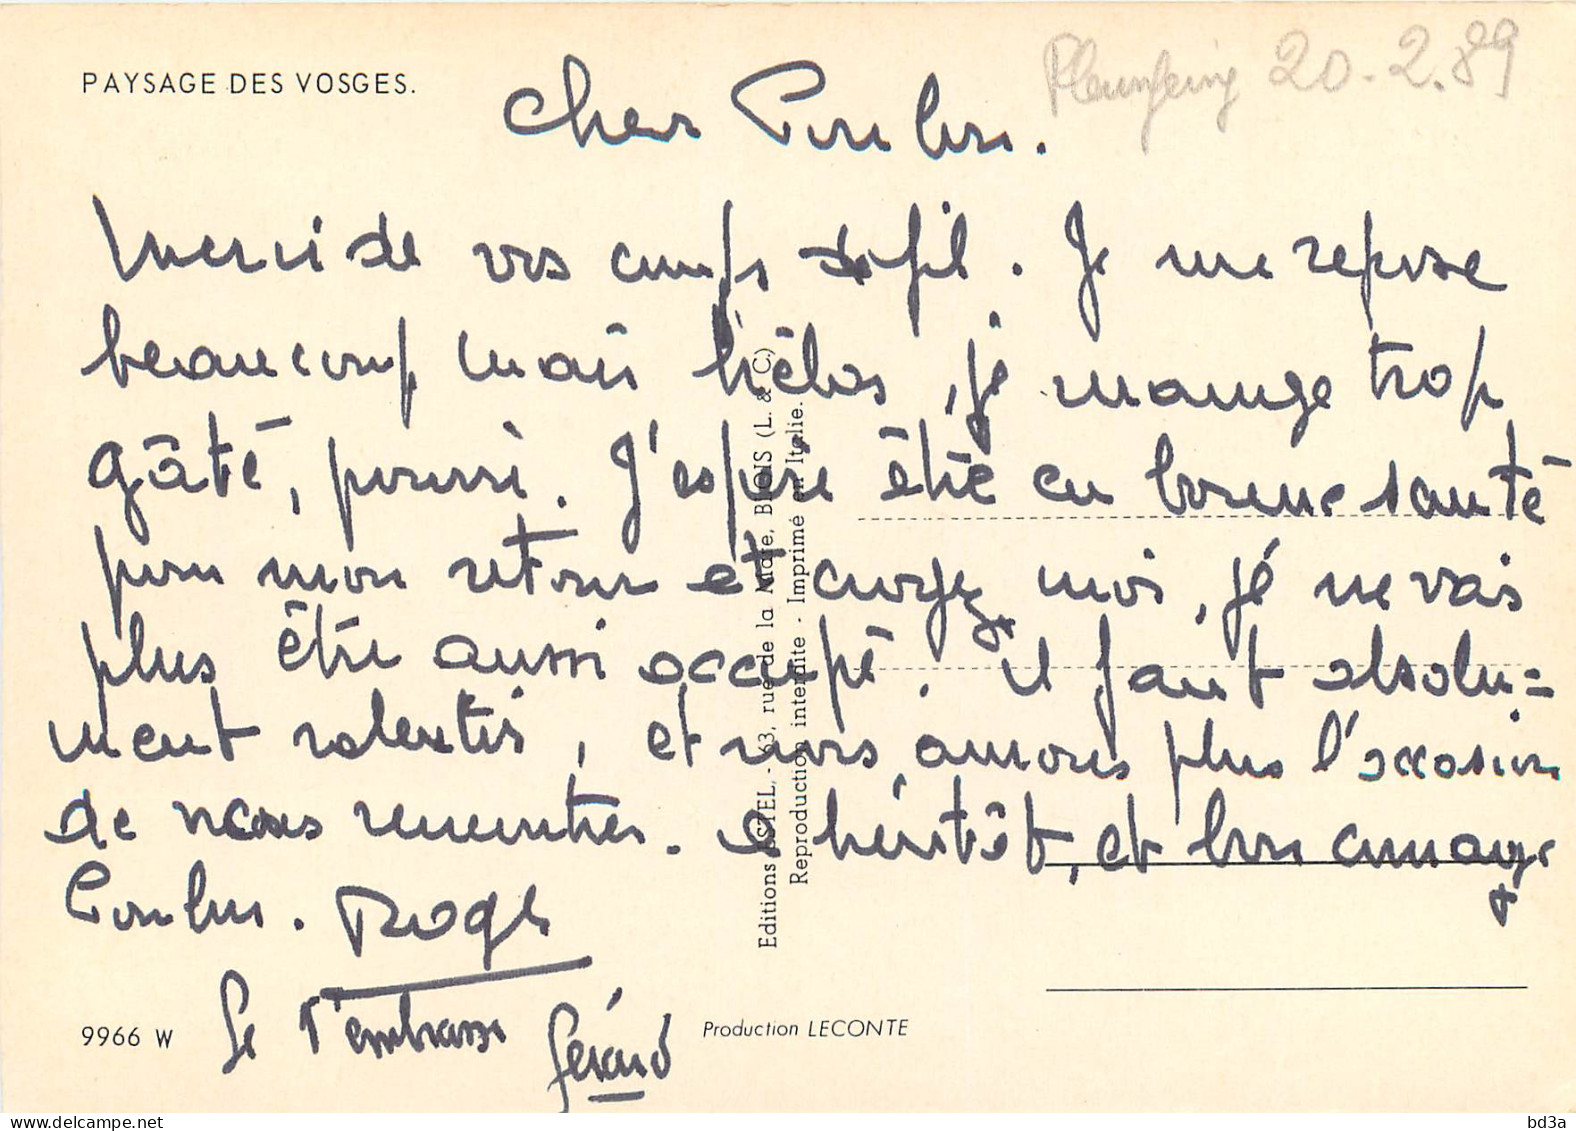 PAYSAGE DES VOSGES.
20-2.89
Cher Poulou.
Merci de vos coups de fil. Je me repose
beaucoup mais hélas, je mange trop
gâté, pourri. J'espère être en bonne santé
pour mon retour et croyez moi, je ne vais
plus être aussi occupé. il faut absolu=
ment ralentir, et nous aurons plus l'occasion
de nous rencontrer. à bientôt, et bon courage
Poulou. Roger
Je t'embrasse Gérard
Editions ESTEL, - 63, rue de la Mare, BLOIS (L. & C.)
Reproduction interdite - Imprimé en Italie.
9966 W
Production LECONTE
bd3a